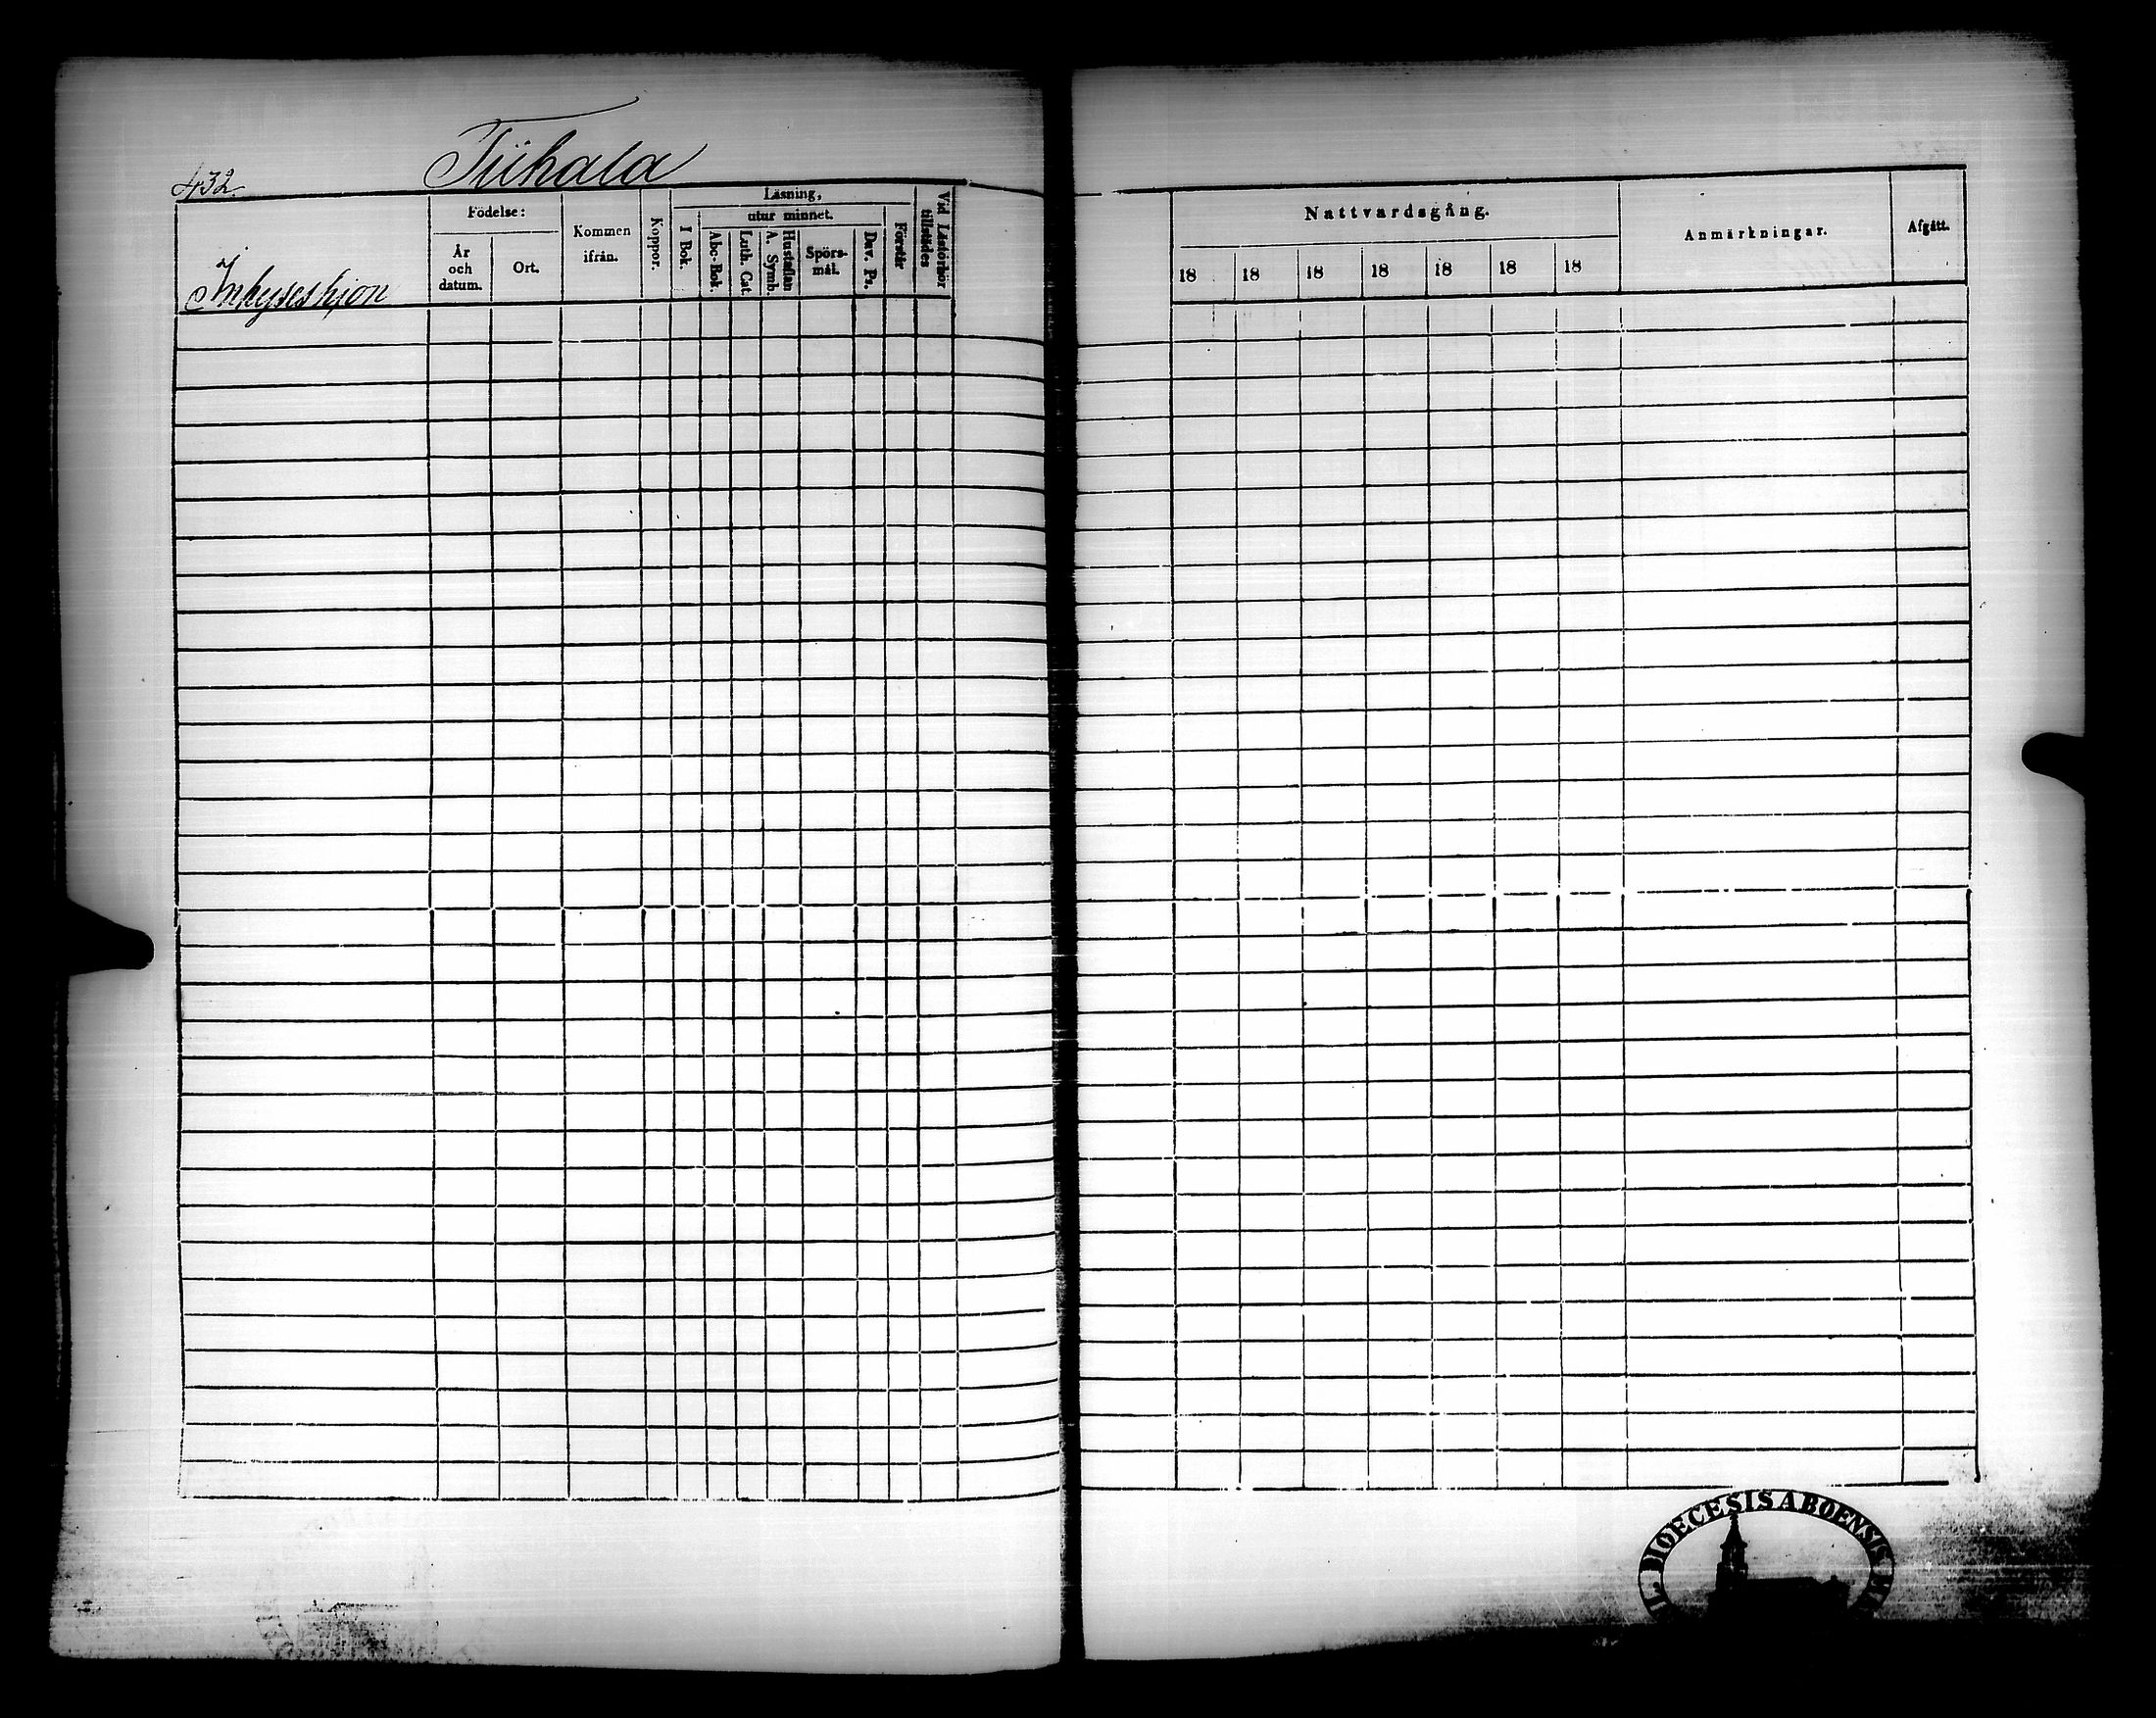 432.
Tiihala
Inhyseshjon
Födelse:
År
och
datum.
Ort.
Kommen
ifrån.
Koppor.
Läsning,
utur minnet.
I Bok.
Abc-Bok.
Luth. Cat.
Hustaflan
A. Symb.
Spörs-
mål.
Dav. Ps.
Förstår
Vid Läsförhör
tillstädes
Nattvardsgång.
18 18 18 18 18 18 18
Anmärkningar.
Afgått.
DIOECESIS ABOENSIS